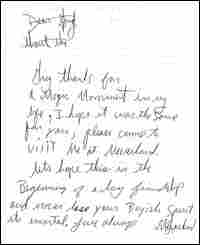 Dear
thanks for
a Magic Moment in my
life, I hope it was the same
for you, please come to
VISIT Me at Neverland.
lets hope this is the
Beginning of a long friendship
and never lose your Boyish Spirit
its immortal, love always